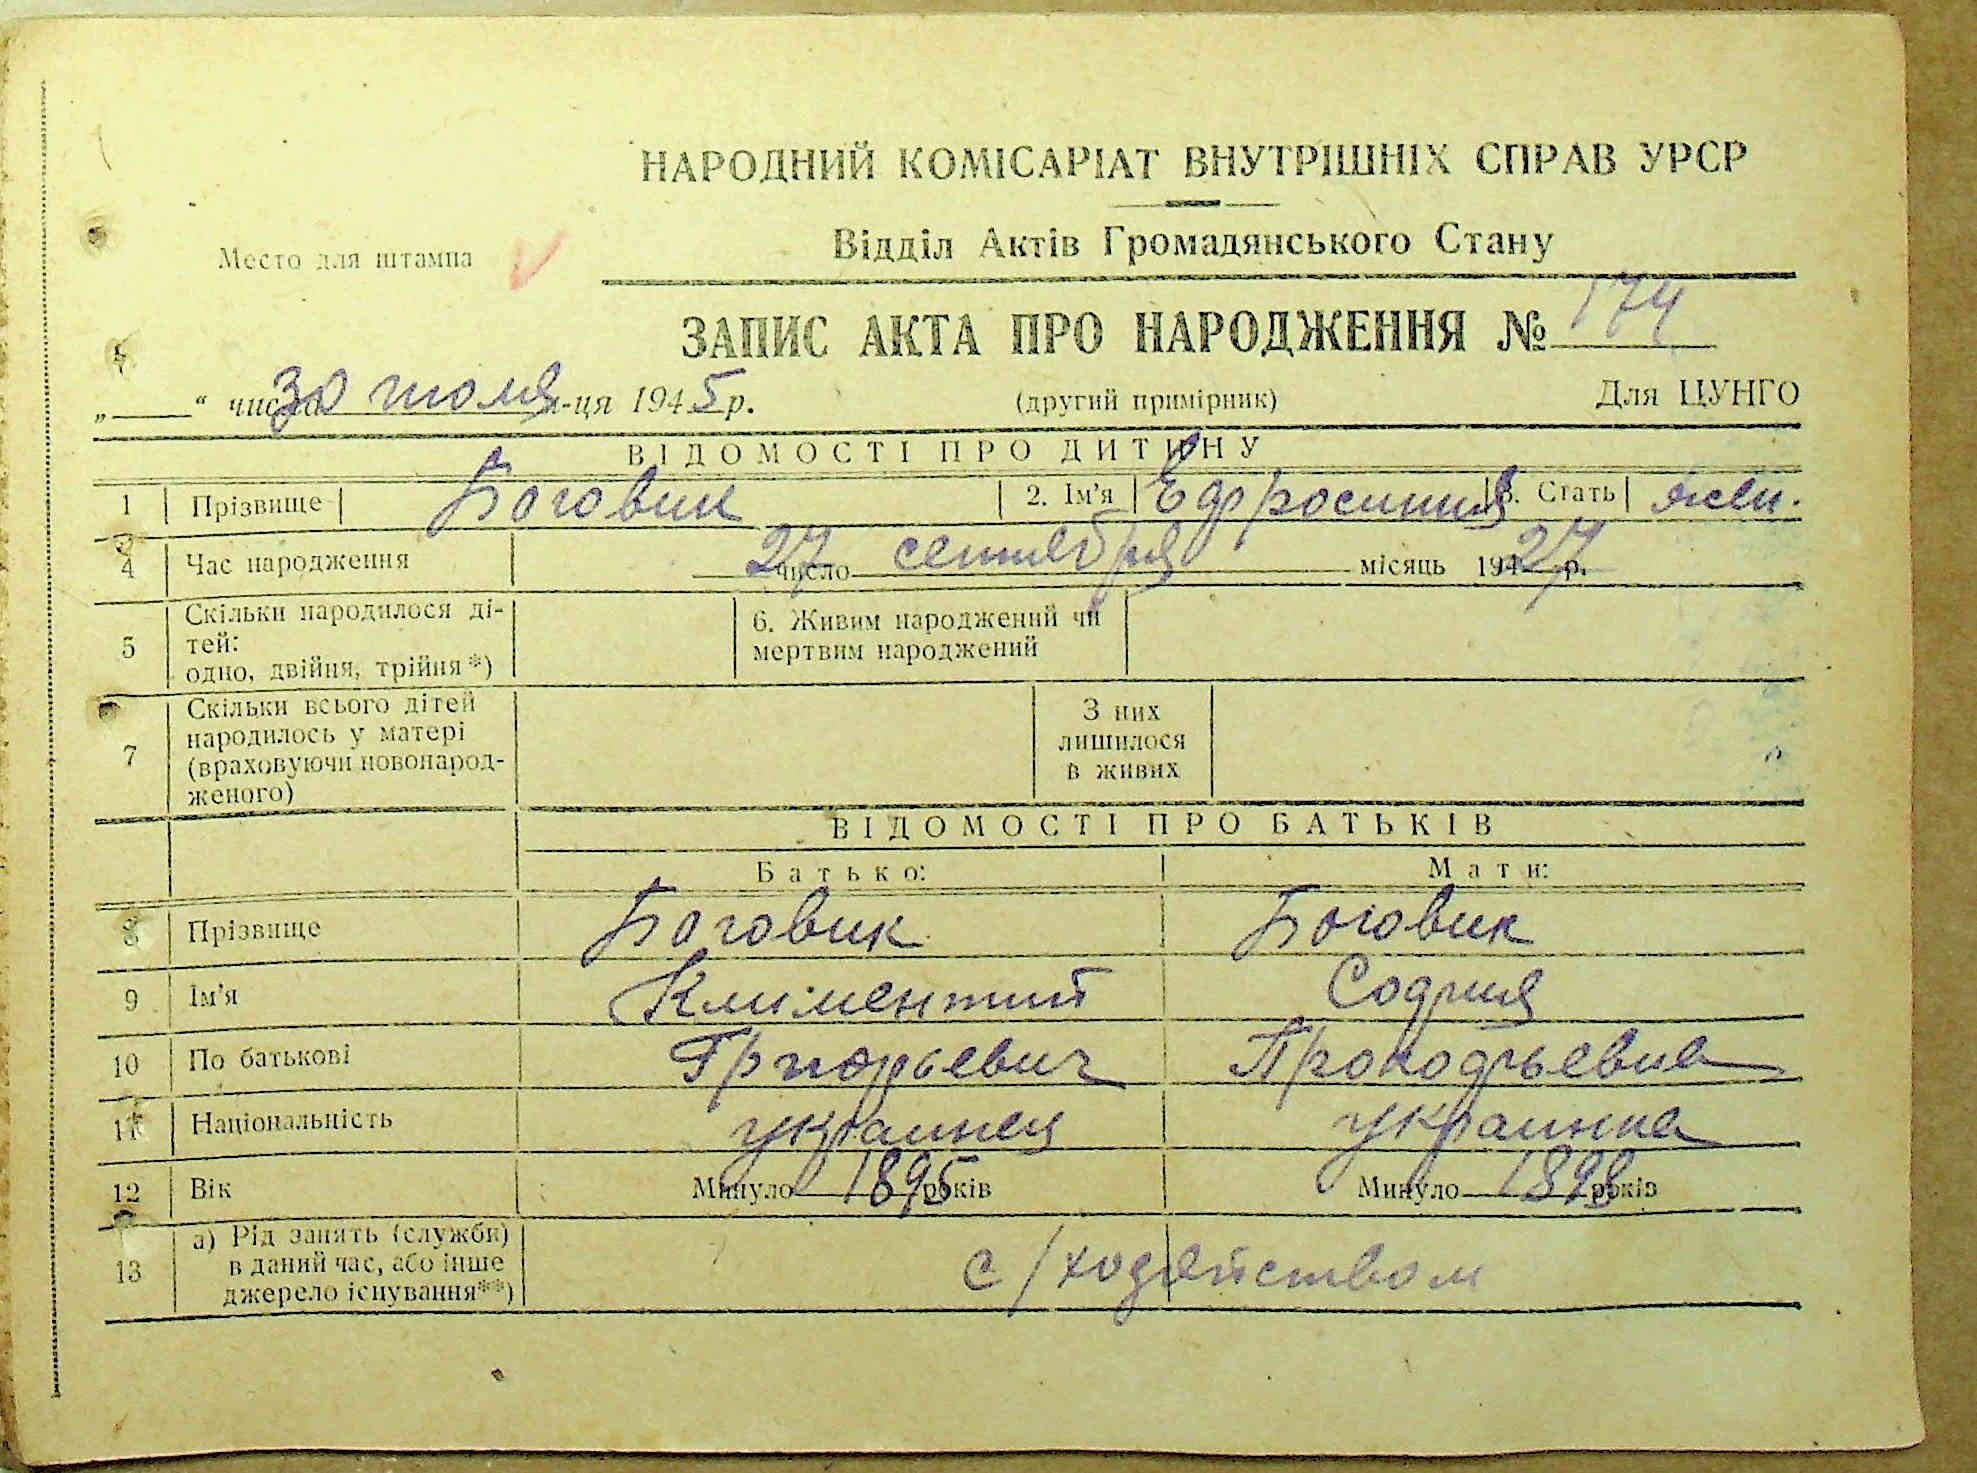 НАРОДНИЙ КОМІСАРІАТ ВНУТРІШНІХ СПРАВ УРСР
Место для штампа
Відділ Актів Громадянського Стану
ЗАПИС АКТА ПРО НАРОДЖЕННЯ № 174
„ “ числа 30 июля м-ця 1945 р. (другий примірник) Для ЦУНГО
ВІДОМОСТІ ПРО ДИТИНУ
1 Прізвище Боговик 2. Ім'я Ефросиния 3. Стать жен.
4 Час народження 27 число сентября місяць 19427 р.
5 Скільки народилося ді-
тей:
одно, двійня, трійня*)
6. Живим народжений чи
мертвим народжений
7 Скільки всього дітей
народилось у матері
(враховуючи новонарод-
женого)
З них
лишилося
в живих
ВІДОМОСТІ ПРО БАТЬКІВ
Батько: Мати:
8 Прізвище Боговик Боговик
9 Ім'я Климентий София
10 По батькові Григорьевич Прокофьевна
11 Національність украинец украинка
12 Вік Минуло 1895 років Минуло 1898 років
13 а) Рід занять (служби)
в даний час, або інше
джерело існування**)
с/хозяйством